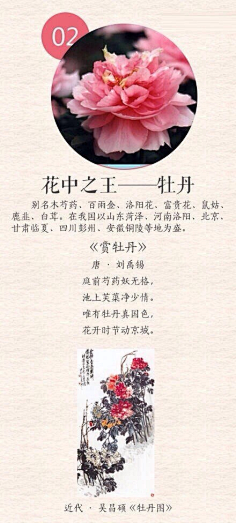 02
花中之王——牡丹
别名木芍药、百雨金、洛阳花、富贵花、鼠姑、
鹿韭、白茸。在我国以山东菏泽、河南洛阳、北京、
甘肃临夏、四川彭州、安徽铜陵等地为盛。
《赏牡丹》
唐·刘禹锡
庭前芍药妖无格，
池上芙蕖净少情。
唯有牡丹真国色，
花开时节动京城。
近代·吴昌硕《牡丹图》